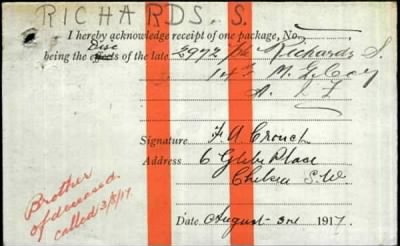 RICHARDS. S.
I hereby acknowledge receipt of one package, No.
Disc
being the effects of the late 2972 Pte Richards S.
14th M. G. Coy
A. I. F
Signature F. A. Crouch
Address 6 Glebe Place
Chelsea S.W.
Brother
of deceased.
called 3/8/17
Date August 3rd 1917.